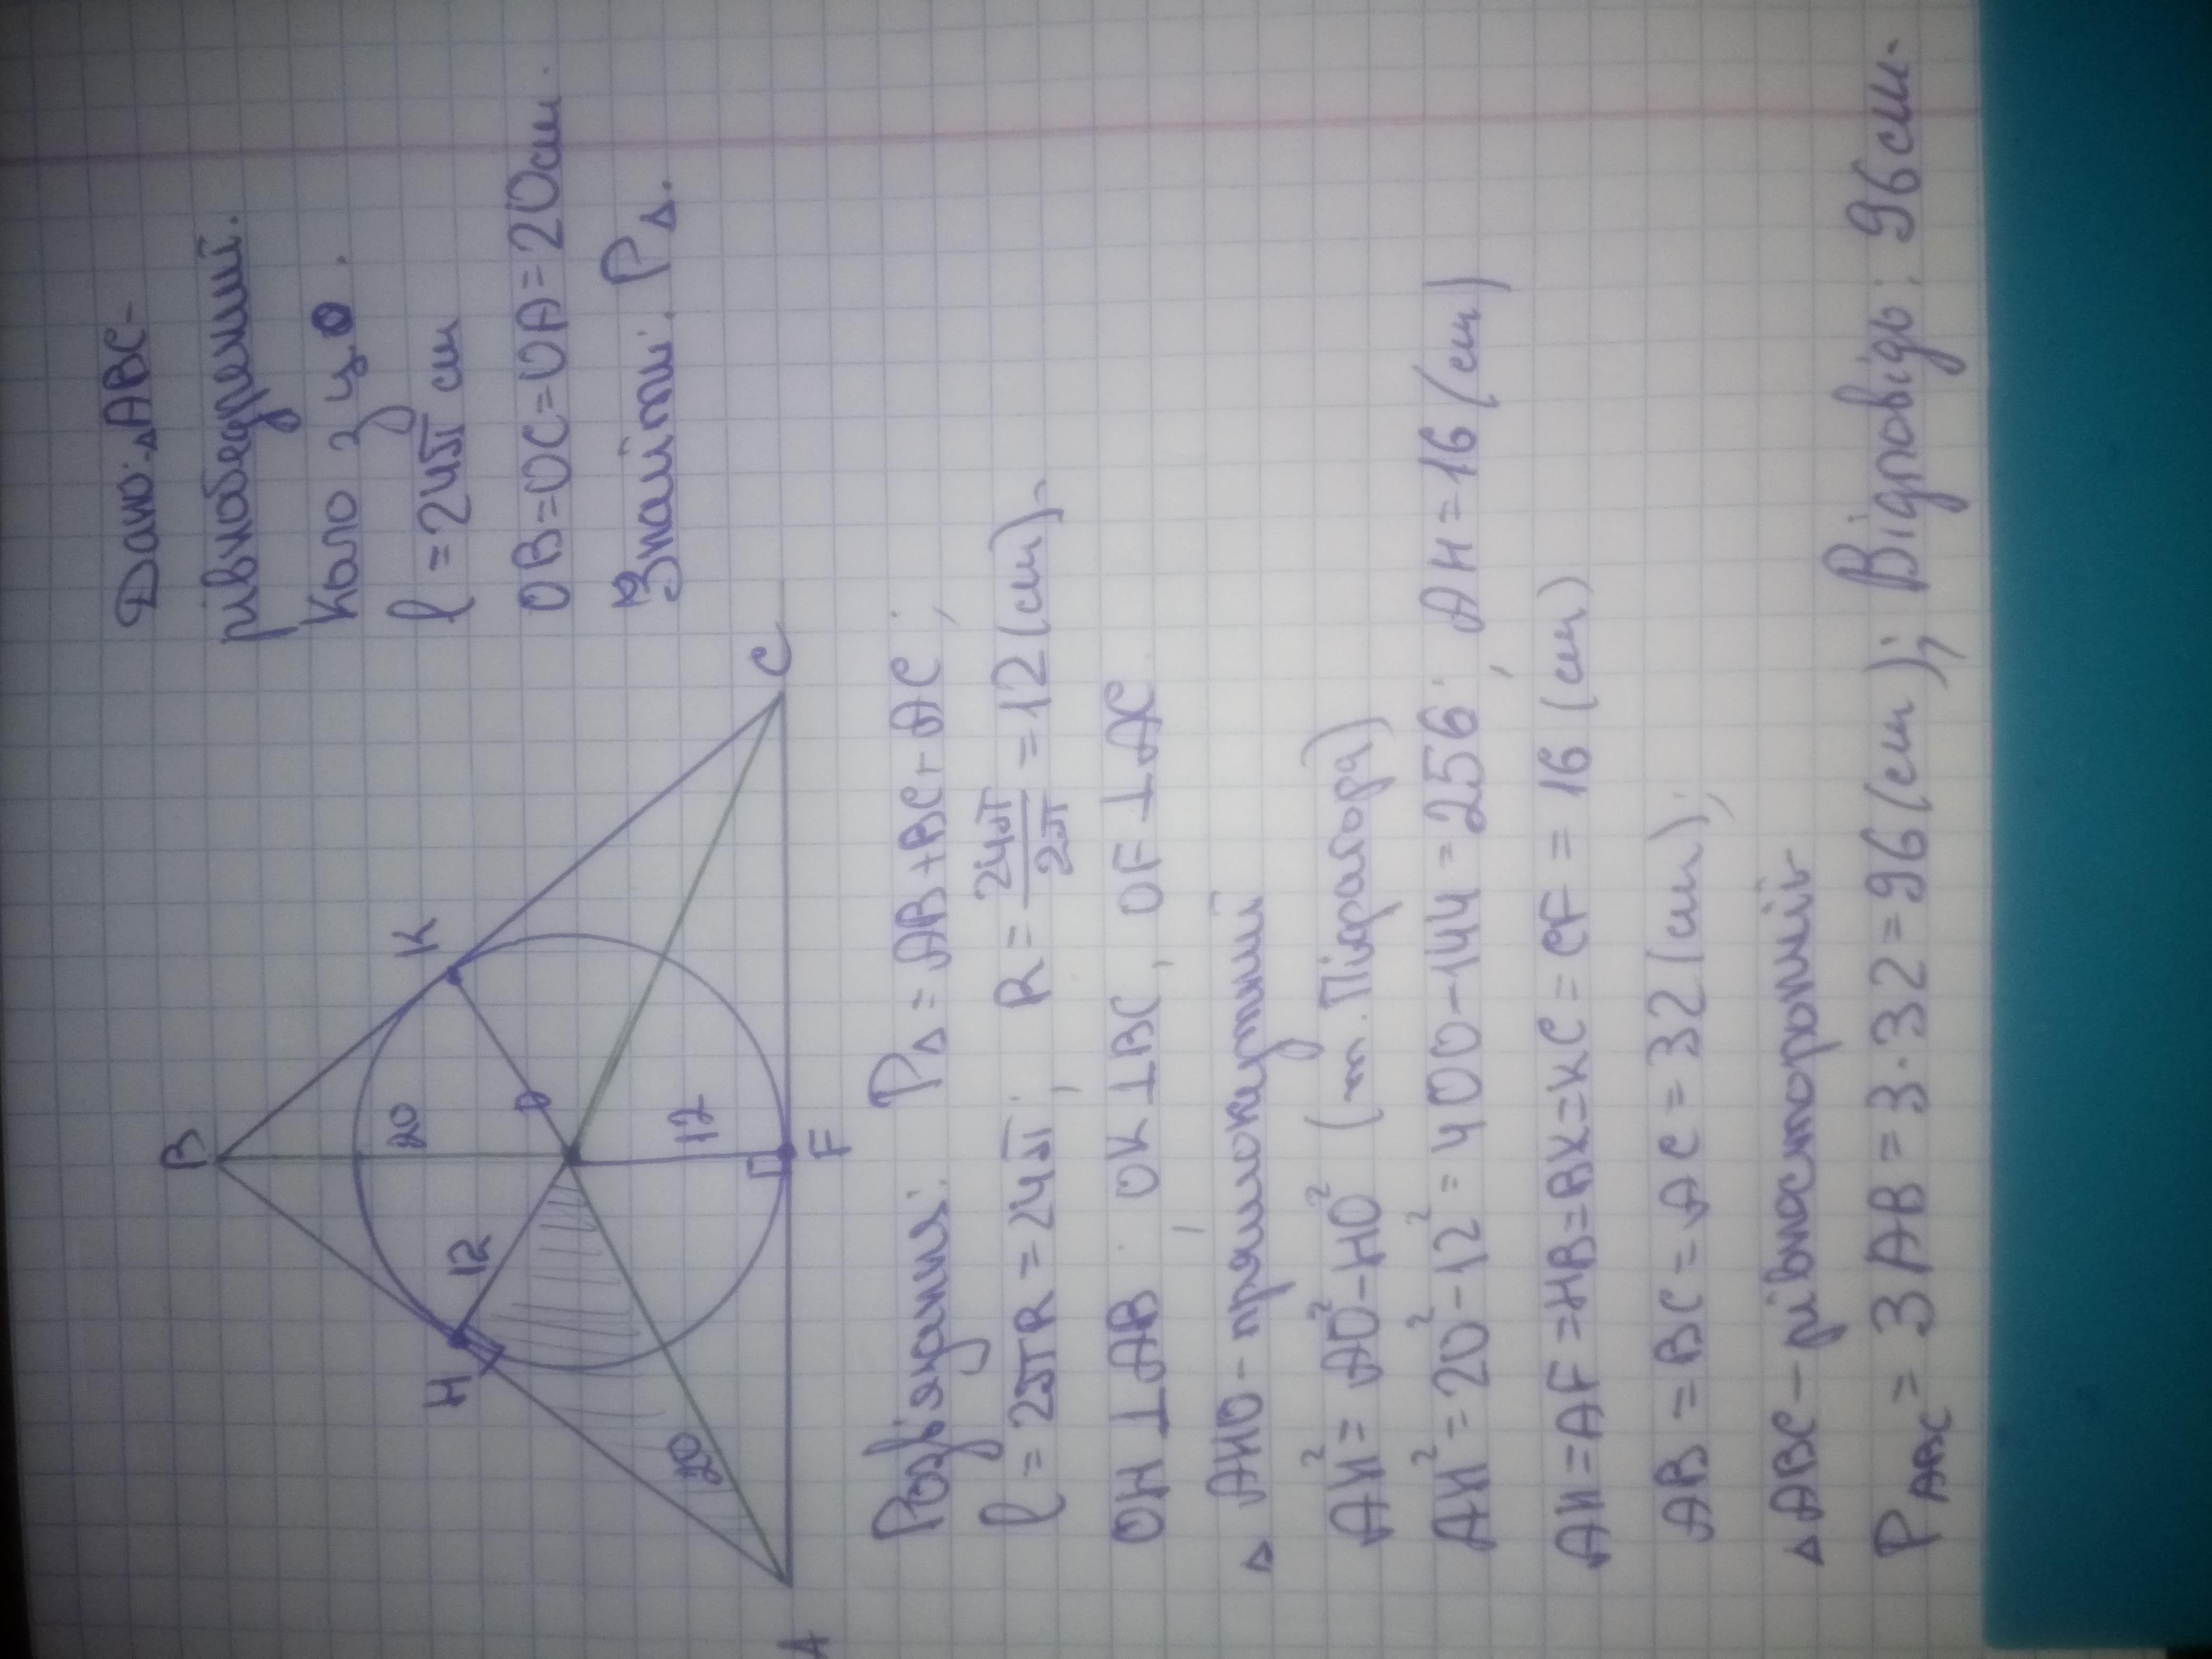 Дано: △ABC-
рівнобедрений.
Коло з ц.O.
l = 24π см
OB=OC=OA=20см.
Знайти: P△.
B
K
20
12
H
O
12
20
A
F
C
Розв'язання: P△ = AB+BC+AC;
l = 2πR = 24π; R = 24π/2π = 12(см).
OH⊥AB; OK⊥BC, OF⊥AC
△ AHO - прямокутний
AH² = AO²-HO² (т. Піфагора)
AH² = 20²-12² = 400-144 = 256; AH = 16 (см)
AH=AF=HB=BK=KC=CF = 16 (см)
AB = BC = AC = 32 (см);
△ ABC - рівносторонній
P ABC = 3 AB = 3·32 = 96 (см); Відповідь: 96 см.